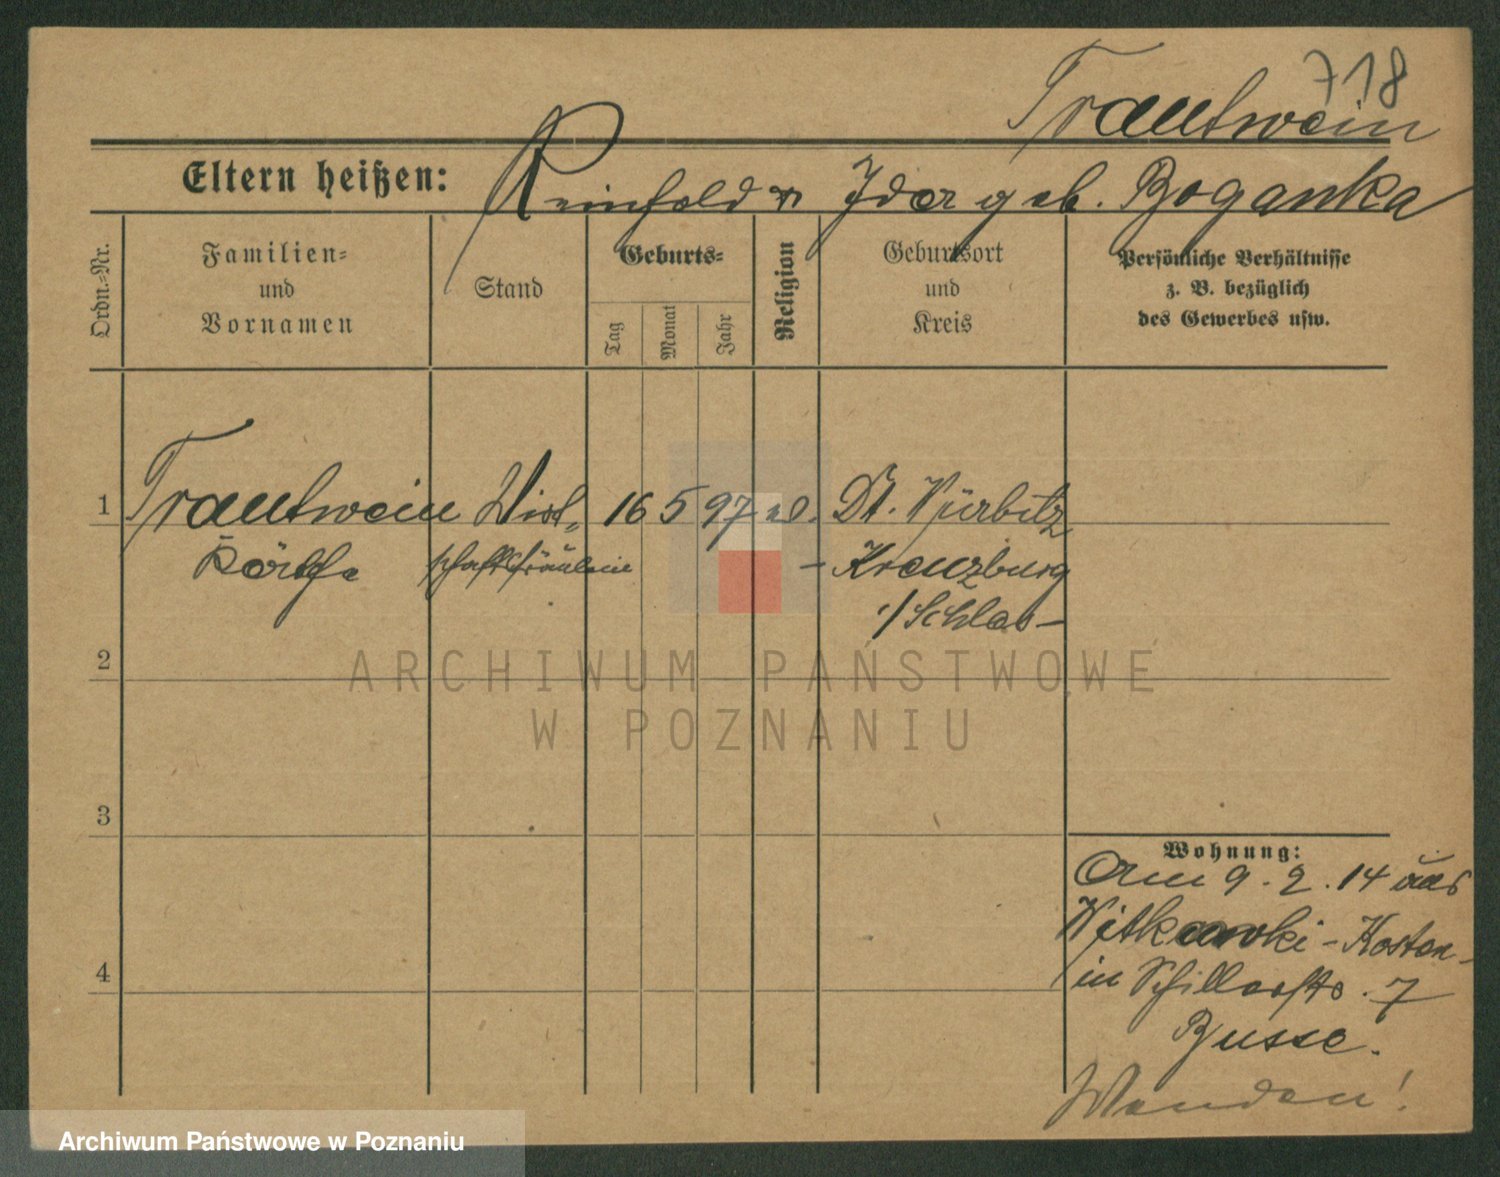 718
Trautwein
Eltern heißen: Reinhold u Ida geb. Boganka
Ordn.=Nr.
Familien=
und
Vornamen
Stand
Geburts=
Tag
Monat
Jahr
Religion
Geburtsort
und
Kreis
Persönliche Verhältnisse
z. B. bezüglich
des Gewerbes usw.
1 Trautwein Wirt= 16 5 97 Dt. Würbitz
Käthe schaftsfräulein - Kreuzburg
/Schles-
2
3
4
Wohnung:
Am 9. 2. 14 aus
Kosten-
in Schillerstr. 7
Busse.
Wenden!
ARCHIWUM PAŃSTWOWE
W POZNANIU
Archiwum Państwowe w Poznaniu